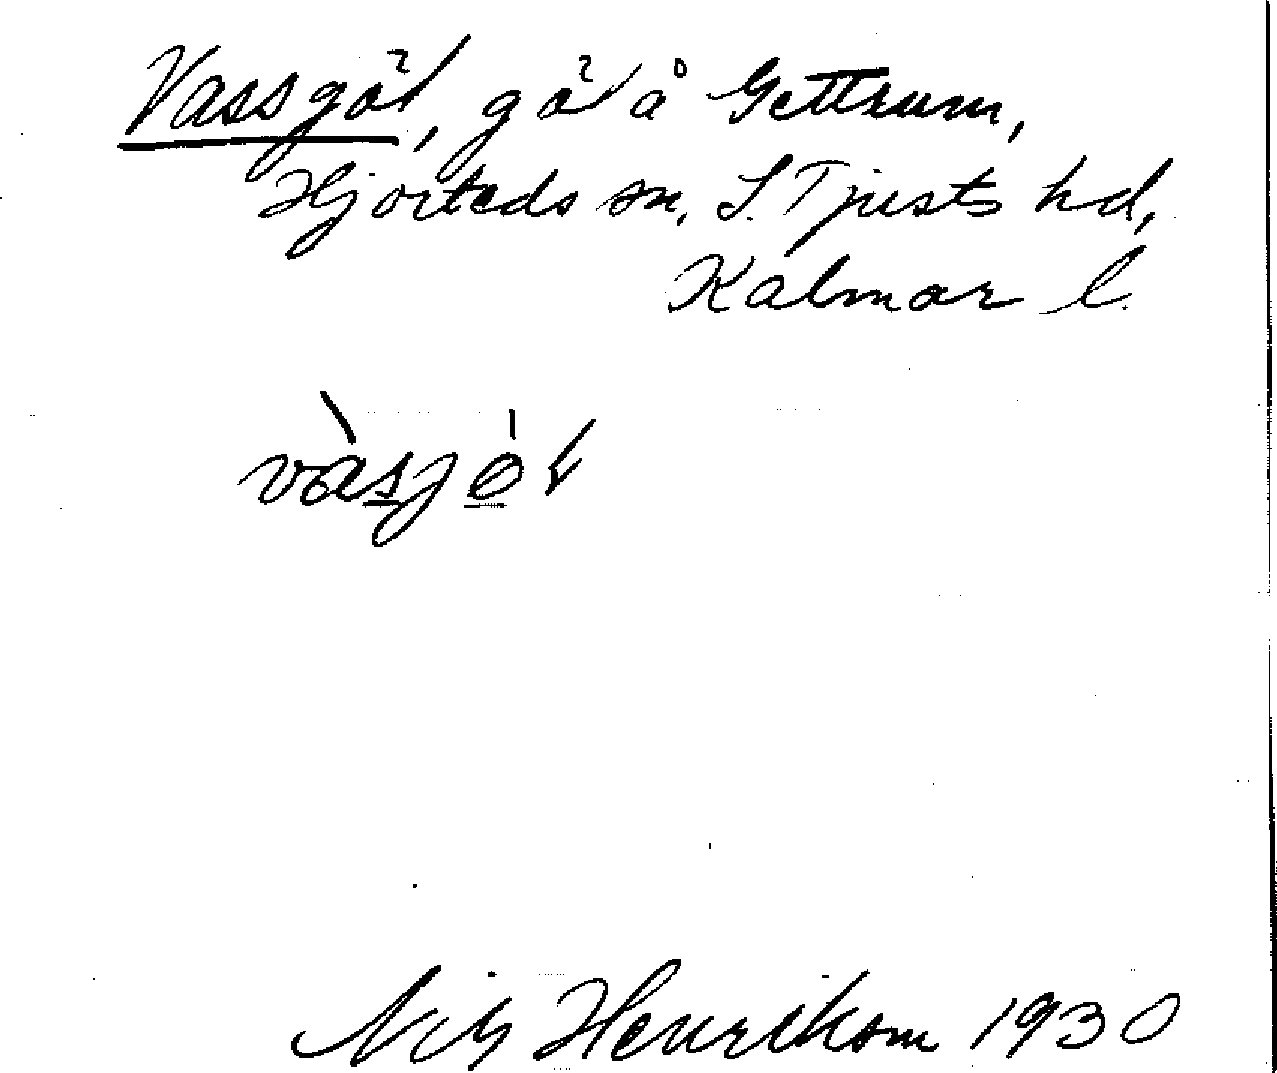 Vassgöl, göl å Gettrum,
Hjorteds sn, S. Tjusts hd,
Kalmar l.
vàsjöl
Nils Henrikson 1930